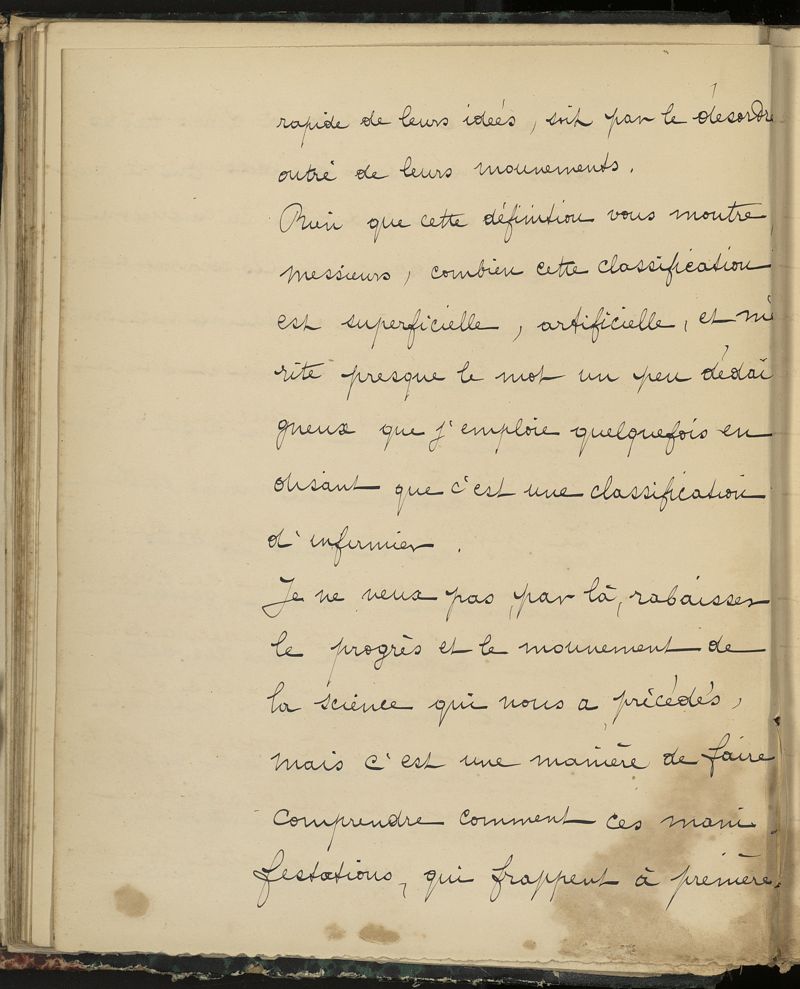 rapide de leurs ideés, soit par le désordre
outré de leurs mouvements.
Rien que cette définition vous montre,
messieurs, combien cette classification
est superficielle, artificielle, et mé
rite presque le mot un peu dédai
gneux que j'emploie quelquefois en
disant que c'est une classification
d'infirmier.
Je ne veux pas, par là, rabaisser
le progrès et le mouvement de
la science qui nous a précédés,
mais c'est une manière de faire
comprendre comment ces mani
festations, qui frappent à première